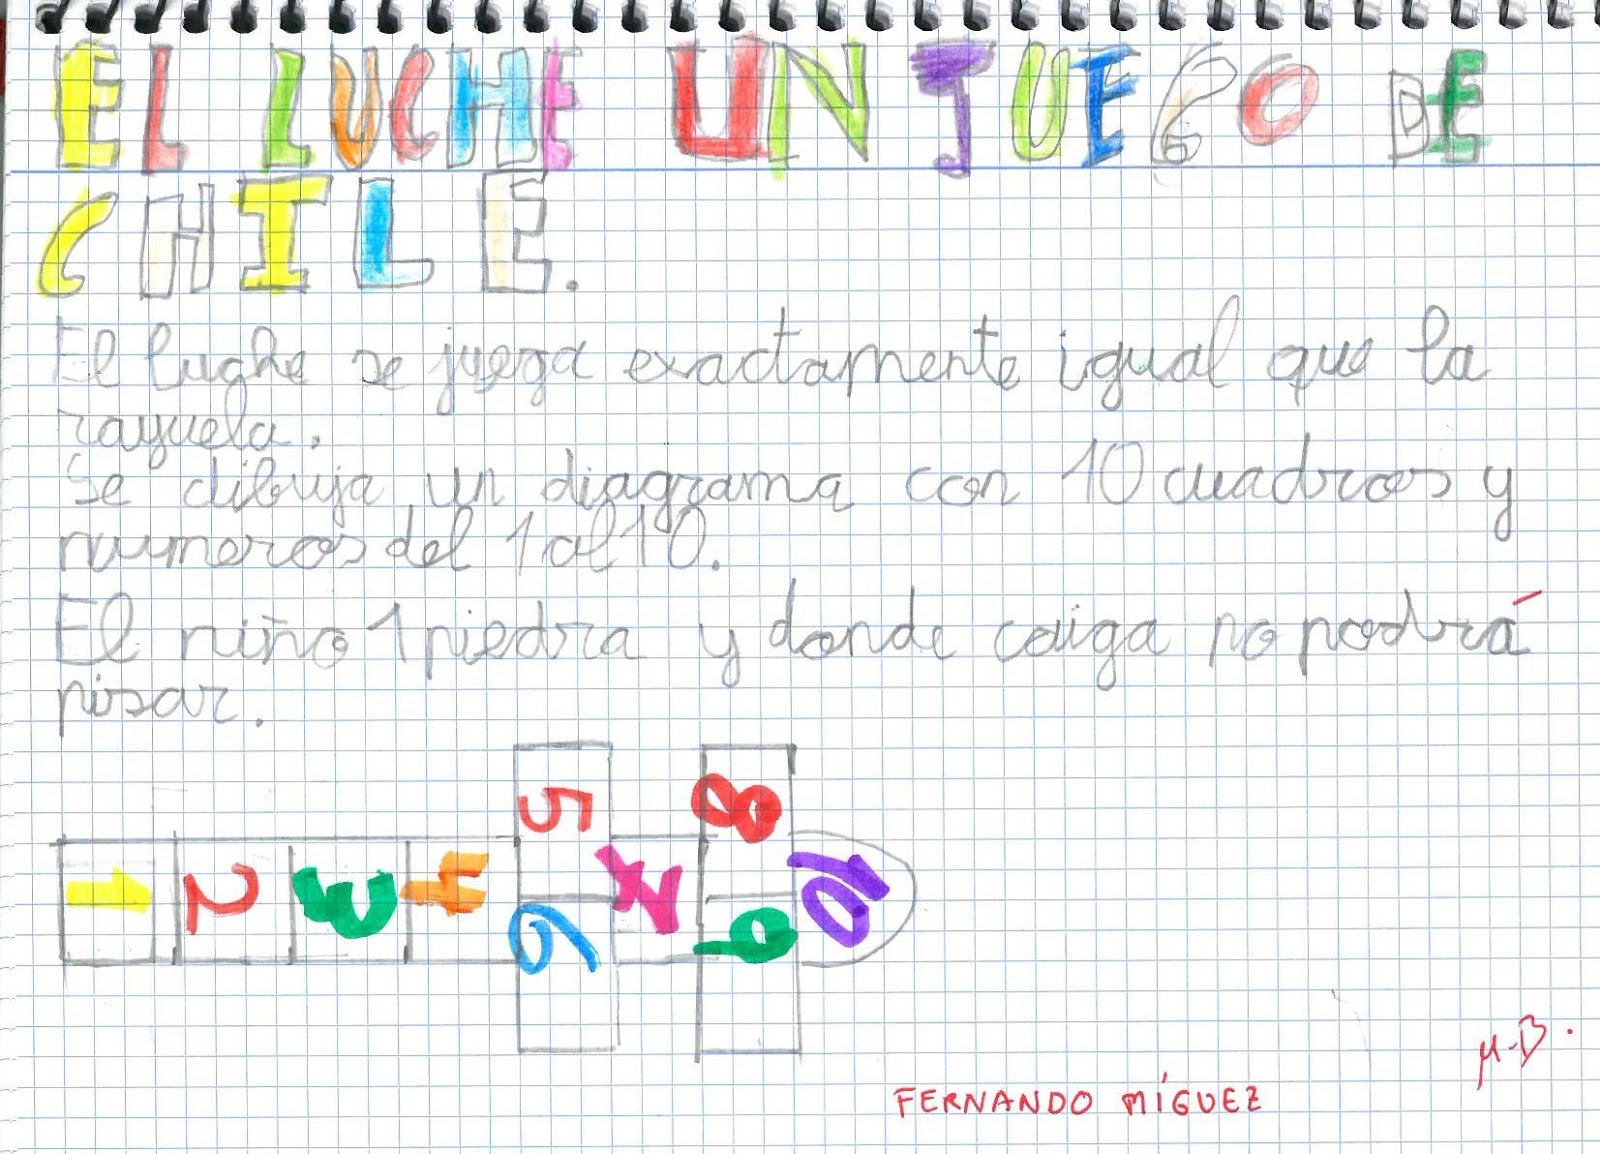 EL LUCHE UN JUEGO DE
CHILE.
El luche se juega exactamente igual que la
rayuela.
Se dibuja un diagrama con 10 cuadros y
numeros del 1 al 10.
El niño 1 piedra y donde caiga no podrá
pisar.
1 2 3 4 5 6 7 8 9 10
M.B.
FERNANDO MÍGUEZ